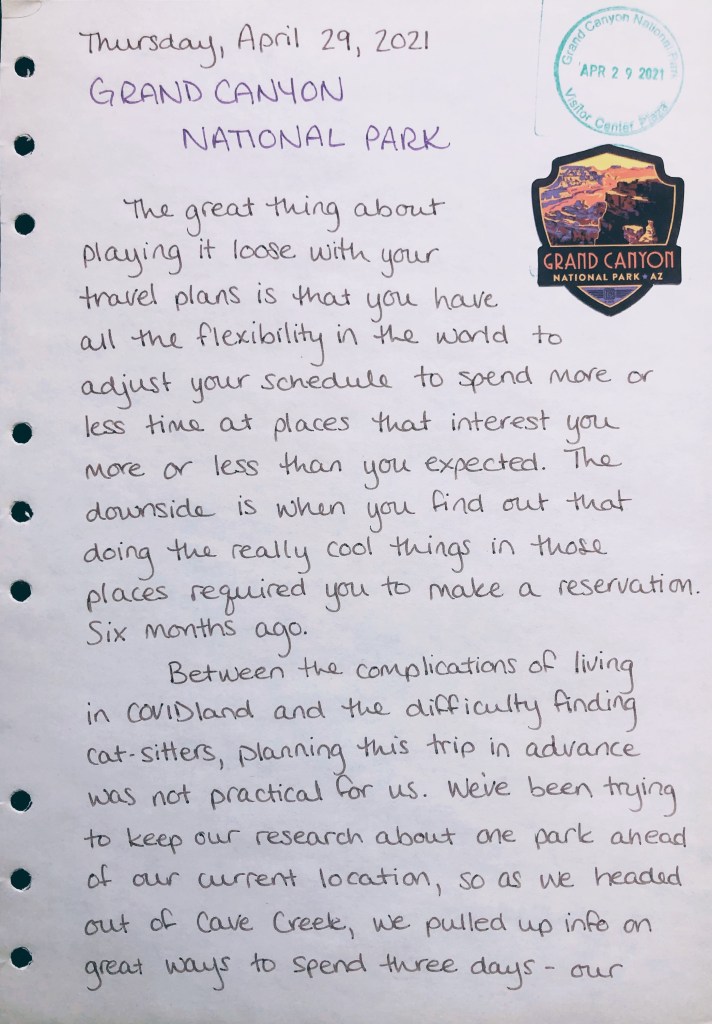 Thursday, April 29, 2021
GRAND CANYON
NATIONAL PARK
Grand Canyon National Park
APR 29 2021
Visitor Center Plaza
GRAND CANYON
NATIONAL PARK AZ
The great thing about
playing it loose with your
travel plans is that you have
all the flexibility in the world to
adjust your schedule to spend more or
less time at places that interest you
more or less than you expected. The
downside is when you find out that
doing the really cool things in those
places required you to make a reservation.
Six months ago.
Between the complications of living
in COVIDland and the difficulty finding
cat-sitters, planning this trip in advance
was not practical for us. We've been trying
to keep our research about one park ahead
of our current location, so as we headed
out of Cave Creek, we pulled up info on
great ways to spend three days - our